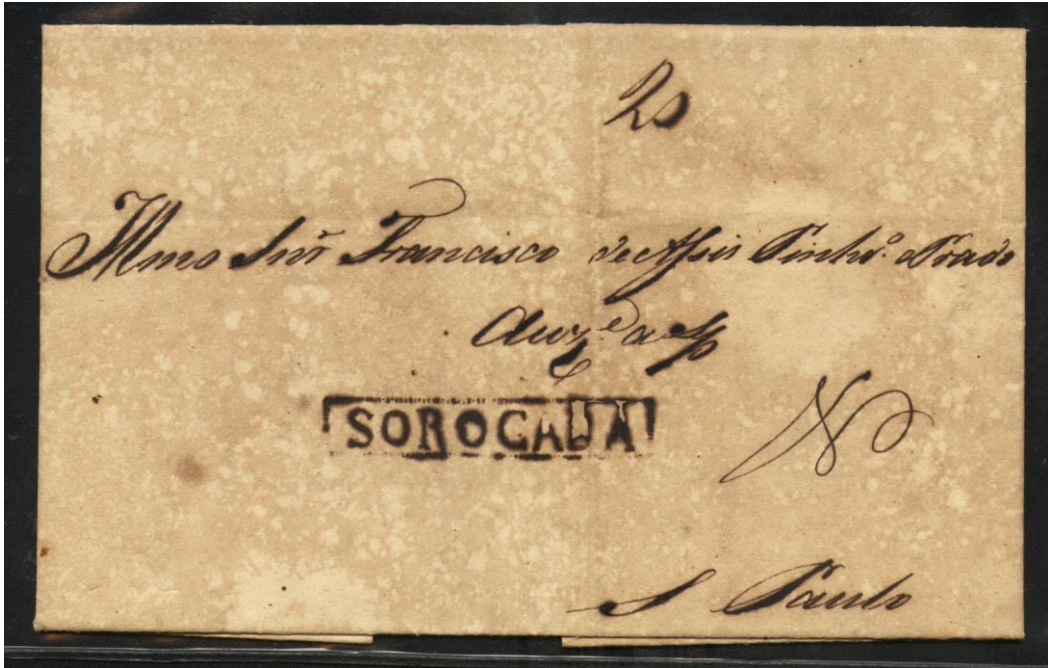 20
Illmo Snr Francisco de Assis Pinhr.º Prado
SOROCABA
S Paulo